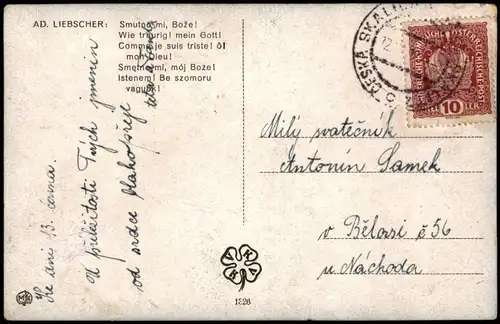 AD. LIEBSCHER: Smutno mi, Bože!
Wie traurig! mein Gott!
Comme je suis triste! ôl
mon Dieu!
Smętno mi, mój Boże!
Istenem! Be szomoru
vagyok!
Ke dni 13. června.
U příležitosti Tvých jmenin
od srdce blahopřeje
teta a
ČESKÁ SKALICE
12
10
Milý svatečník
Antonín Samek
v Bělovsi č 56
u Náchoda
VKKV
MK
1326